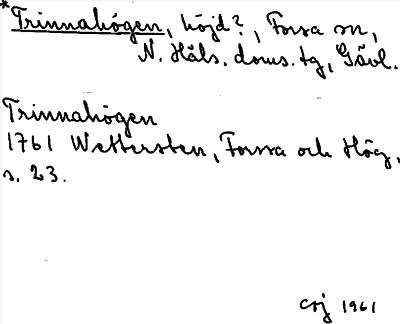 *Trinnahögen, höjd?, Forsa sn,
N. Häls. doms. tg, Gävl.
Trinnahögen
1761 Wettersten, Forssa och Hög,
s. 23.
1961